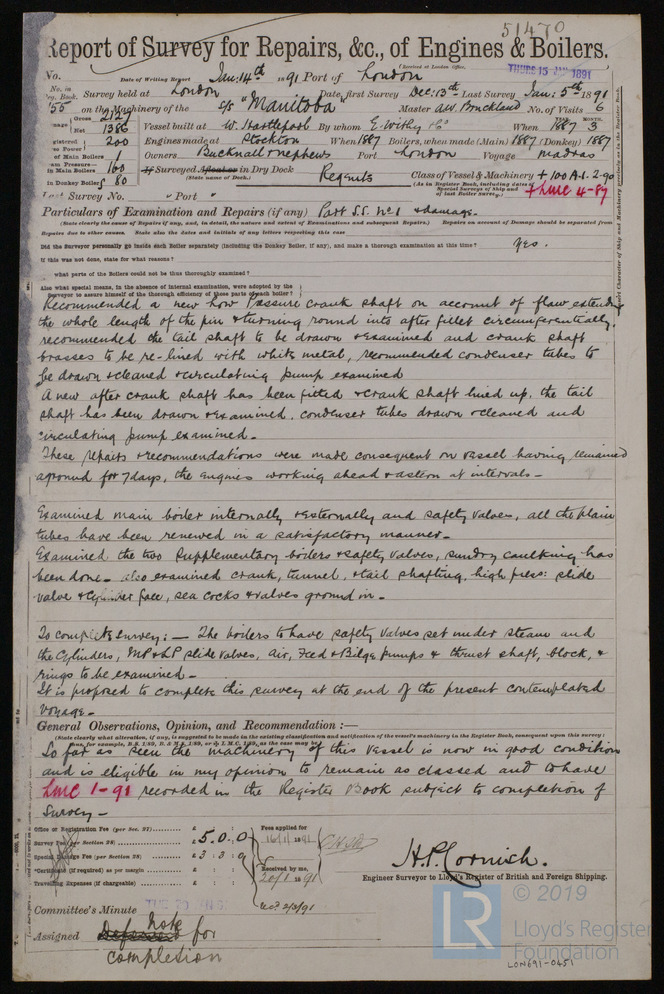 51470
Report of Survey for Repairs, &c., of Engines & Boilers.
(Received at London Office, THURS 15 JAN 1891)
No. Date of Writing Report Jan: 14th 1891 Port of London
No. in Reg. Book. Survey held at London Date, first Survey Dec: 13th Last Survey Jan: 5th 1891
55 on the Machinery of the S/S "Manitoba" Master A.W. Bruckland No. of Visits 6
Gross 2127
Net 1386 Vessel built at W. Hartlepool By whom E. Withy & Co When YEAR. 1887 MONTH. 3
Registered 200 Engines made at Stockton When 1887 Boilers, when made (Main) 1887 (Donkey) 1887
of Main Boilers 1 Owners Bucknall Nephews Port London Voyage Madras
in Main Boilers 160 If Surveyed Afloat or in Dry Dock Regents Class of Vessel & Machinery + 100 A.1. 2-90
(State name of Dock.) (As in Register Book, including dates of Special Surveys of Ship and of last Boiler Survey.) + LMC 4-87
in Donkey Boilers 80
Last Survey No. " Port "
Particulars of Examination and Repairs (if any) Part S.S. No. 1 & damage.
(State clearly the causes of Repairs (if any), and, in detail, the nature and extent of Examinations and subsequent Repairs.) Repairs on account of Damage should be separated from
Repairs due to other causes. State also the dates and initials of any letters respecting this case
Did the Surveyor personally go inside each Boiler separately (including the Donkey Boiler, if any), and make a thorough examination at this time? Yes.
If this was not done, state for what reasons?
what parts of the Boilers could not be thus thoroughly examined?
Also what special means, in the absence of internal examination, were adopted by the
Surveyor to assure himself of the thorough efficiency of those parts of each boiler?
Recommended a new low Pressure crank shaft on account of flaw extending
the whole length of the pin & turning round into after fillet circumferentially,
recommended the tail shaft to be drawn & examined and crank shaft
brasses to be re-lined with white metal, recommended condenser tubes to
be drawn & cleaned & circulating pump examined
A new after crank shaft has been fitted & crank shaft lined up, the tail
shaft has been drawn & examined, condenser tubes drawn & cleaned and
circulating pump examined.-
These repairs & recommendations were made consequent on vessel having remained
aground for 7 days, the engines working ahead & astern at intervals -
Examined main boiler internally & externally and safety valves, all the plain
tubes have been renewed in a satisfactory manner.-
Examined the two Supplementary boilers & safety valves, sundry caulking has
been done.- also examined crank, tunnel, & tail shafting, high press: slide
valve & Cylinder face, sea cocks & valves ground in.-
To complete survey:- The boilers to have safety valves set under steam and
the Cylinders, MP & LP slide valves, air, Feed & Bilge pumps & thrust shaft, block, &
rings to be examined.-
It is proposed to complete this survey at the end of the present contemplated
voyage.-
General Observations, Opinion, and Recommendation :—
(State clearly what alteration, if any, is suggested to be made in the existing classification and notification of the vessel's machinery in the Register Book, consequent upon this survey:
thus, for example, B.S. 1/89, B. & M.S. 1/89, or L.M.C. 1/89, as the case may be)
So far as seen the machinery of this vessel is now in good condition
and is eligible in my opinion to remain as classed and to have
LMC 1-91 recorded in the Register Book subject to completion of
Survey.-
Office or Registration Fee (per Sec. 27) £ Fees applied for
Survey Fee (per Section 28) £ 5.0.0 16/1/1891
Special Damage Fee (per Section 28) £ 3.3.0
Certificate (if required) as per margin £ Received by me,
Travelling Expenses (if chargeable) £ 20/1 1891
H.P. Cornish.
Engineer Surveyor to Lloyd's Register of British and Foreign Shipping.
Committee's Minute TUES 20 JAN 91
Assigned Deferred Note for
completion
© 2019
LR
Lloyd's Register
Foundation
LON691-0451